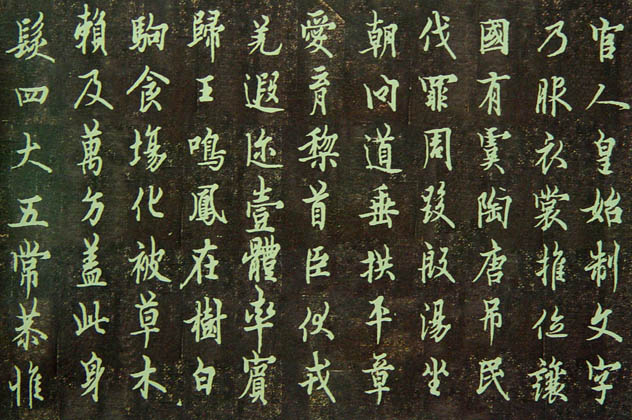 官人皇始制文字
乃服衣裳推位讓
國有虞陶唐吊民
伐罪周發殷湯坐
朝問道垂拱平章
愛育黎首臣伏戎
羌遐迩壹體率賓
歸王鳴鳳在樹白
駒食塲化被草木
賴及萬方蓋此身
髮四大五常恭惟